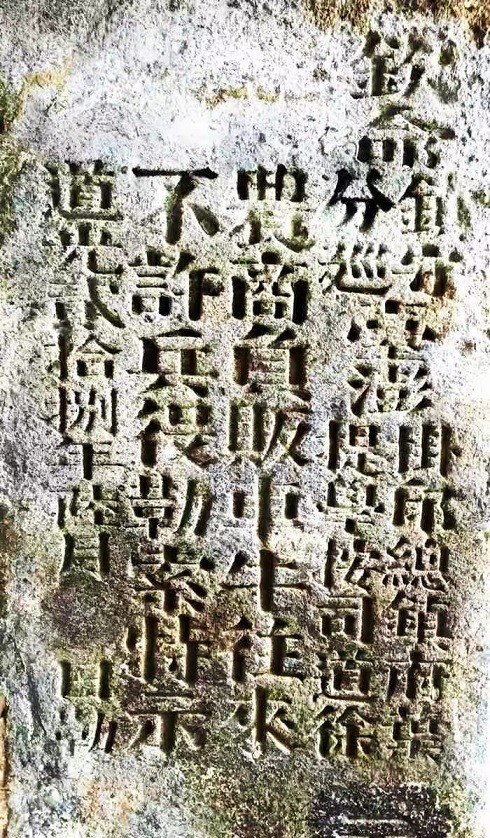 欽命
鎮守
分巡
臺澎
掛印總鎮府葉
提學按司道徐
農商負販車牛往來
不許兵役勒索特示
道光貳拾捌年陸月 日勒